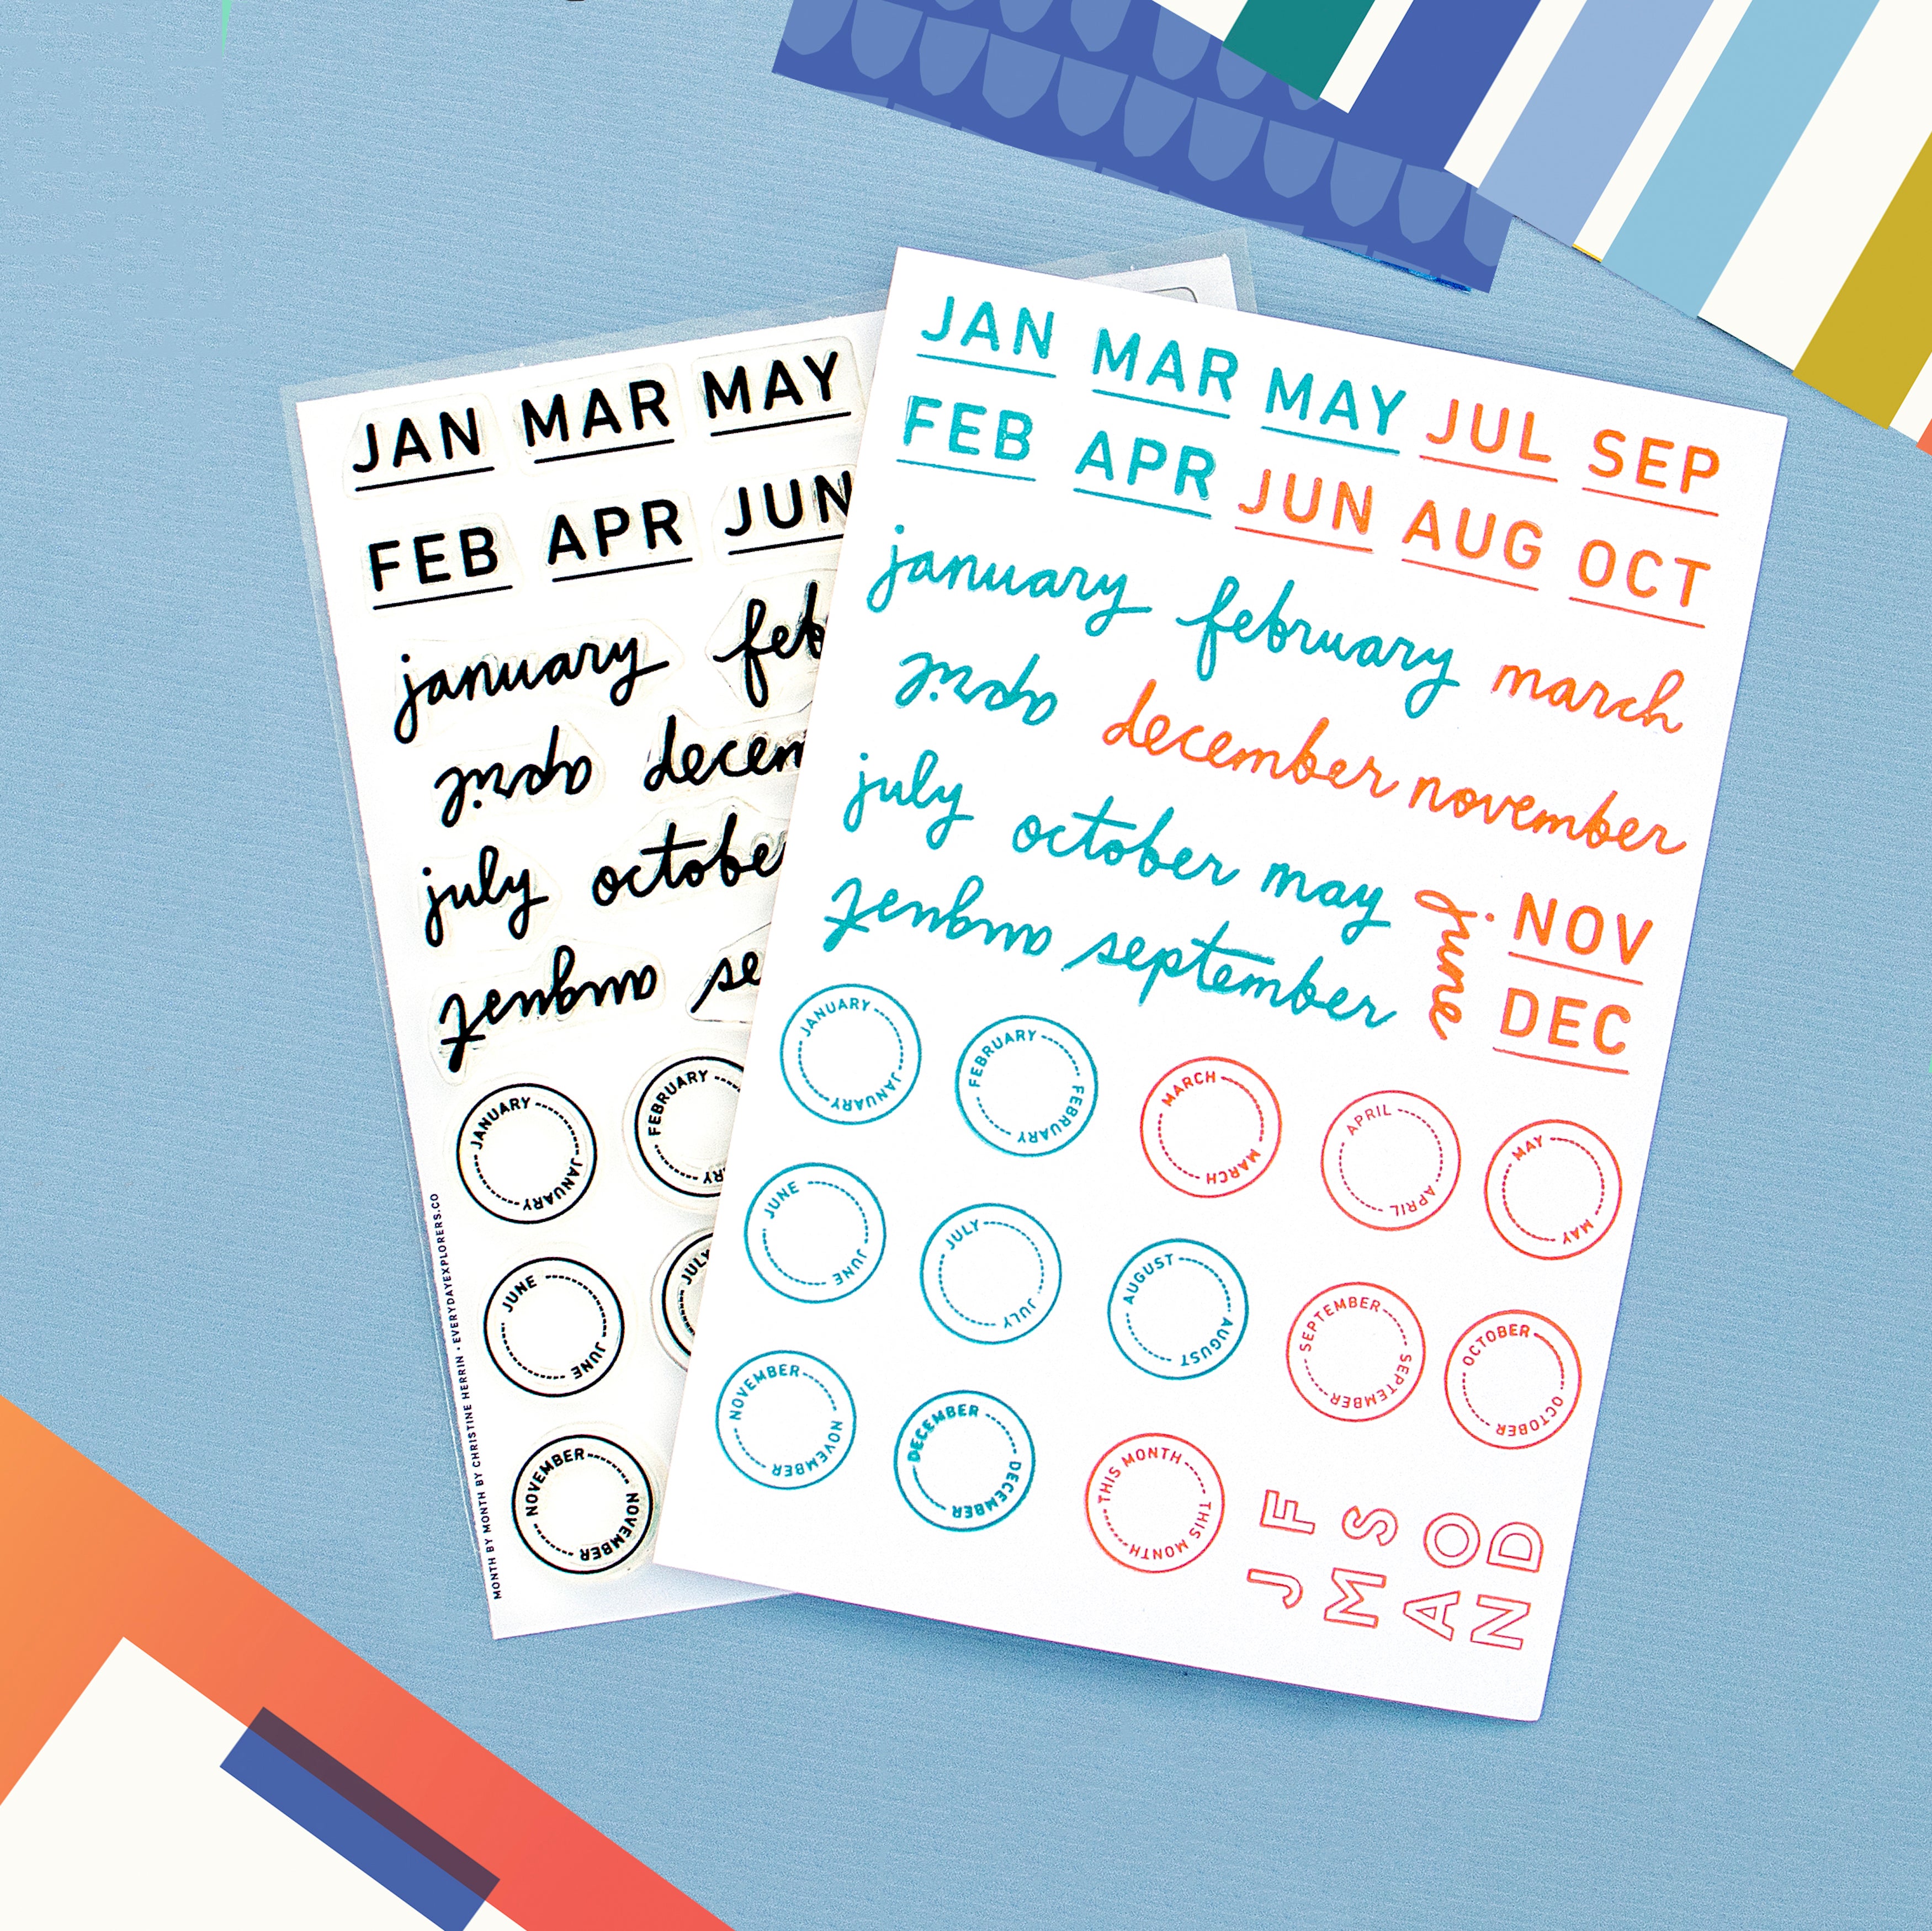 JAN MAR MAY
FEB APR JUN
january feb
april decem
july october
august se
JANUARY JANUARY
FEBRUARY
JUNE JUNE
JULY
NOVEMBER NOVEMBER
MONTH BY MONTH BY CHRISTINE HERRIN • EVERYDAYEXPLORERS.CO
JAN MAR MAY JUL SEP
FEB APR JUN AUG OCT
january february march
april december november
july october may
august september june
NOV
DEC
JANUARY JANUARY
FEBRUARY FEBRUARY
MARCH MARCH
APRIL APRIL
MAY MAY
JUNE JUNE
JULY JULY
AUGUST AUGUST
SEPTEMBER SEPTEMBER
OCTOBER OCTOBER
NOVEMBER NOVEMBER
DECEMBER DECEMBER
THIS MONTH THIS MONTH
J F
M S
A O
N D